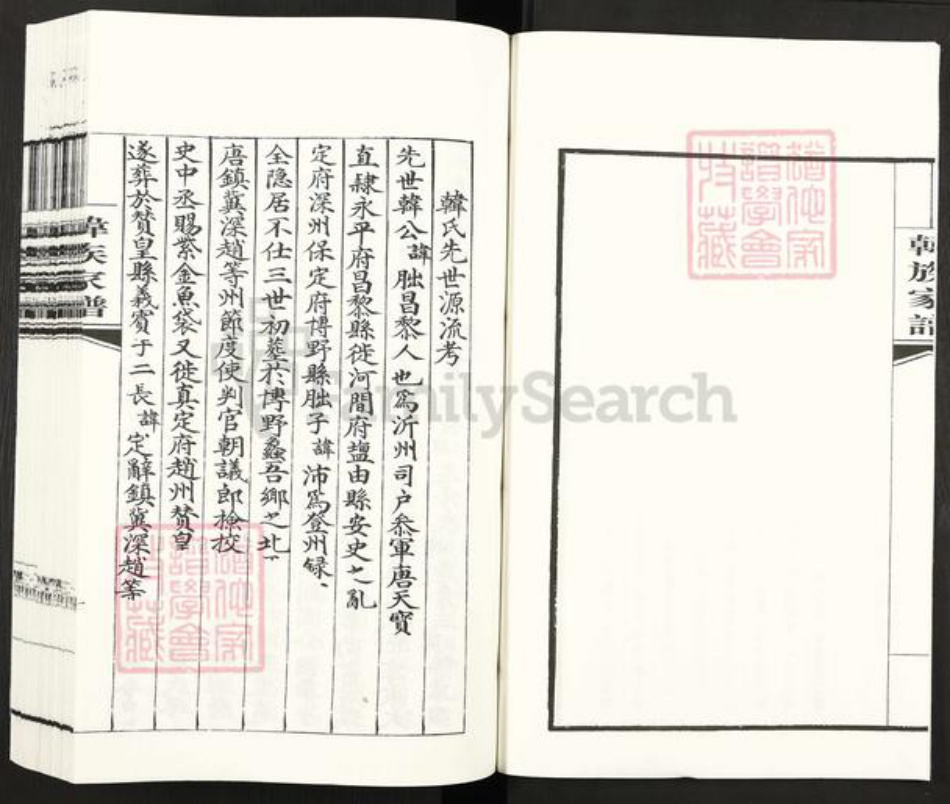 韓族家譜
韓氏先世源流考
先世韓公諱朏昌黎人也爲沂州司户叅軍唐天寶
直隸永平府昌黎縣徙河間府塩由縣安史之亂
定府深州保定府博野縣朏子諱沛爲登州録、
全隐居不仕三世初塟於博野蠡吾鄉之北
唐鎮冀深趙等州節度使判官朝議郎撿挍
史中丞賜紫金魚袋又徙真定府趙州賛皇
遂葬於賛皇縣義賓子二長諱定辭鎮冀深趙等
韓族家譜
FamilySearch